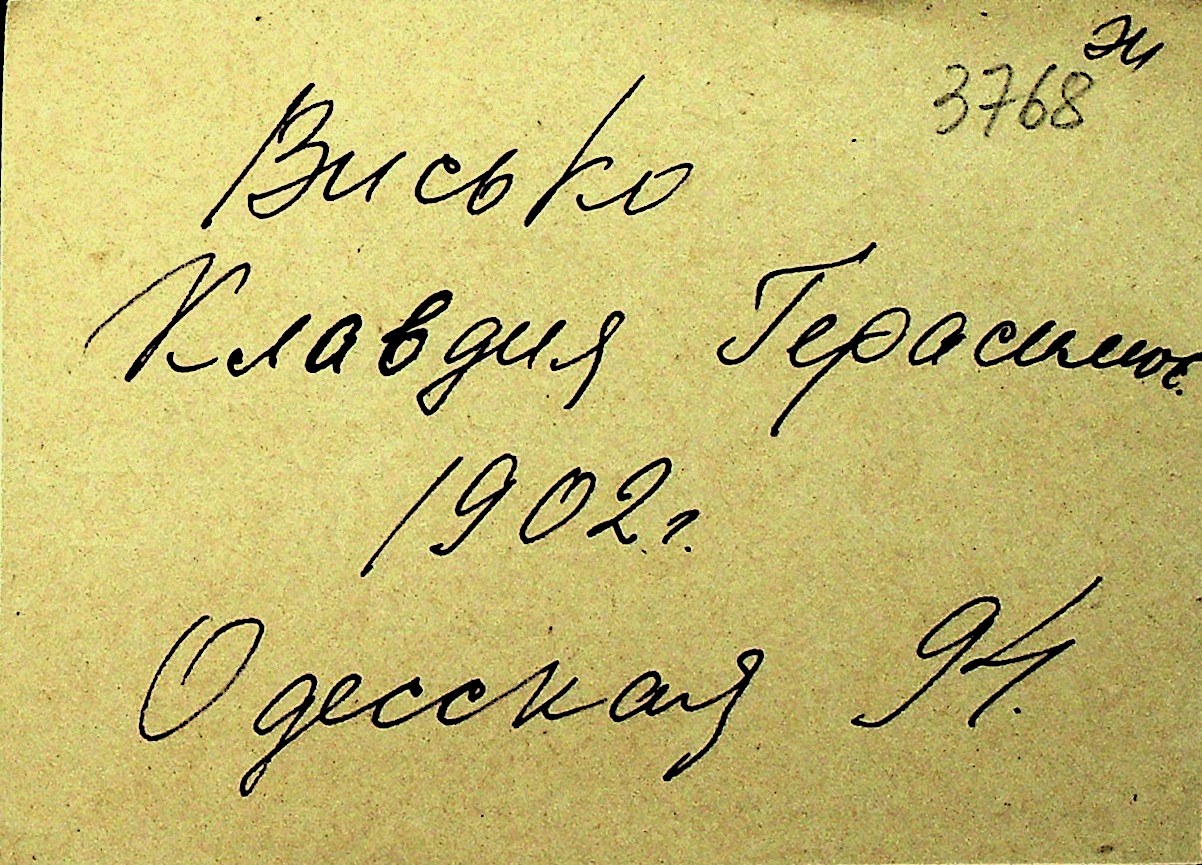 3768
Висько
Клавдия Герасимов.
1902 г.
Одесская 94.